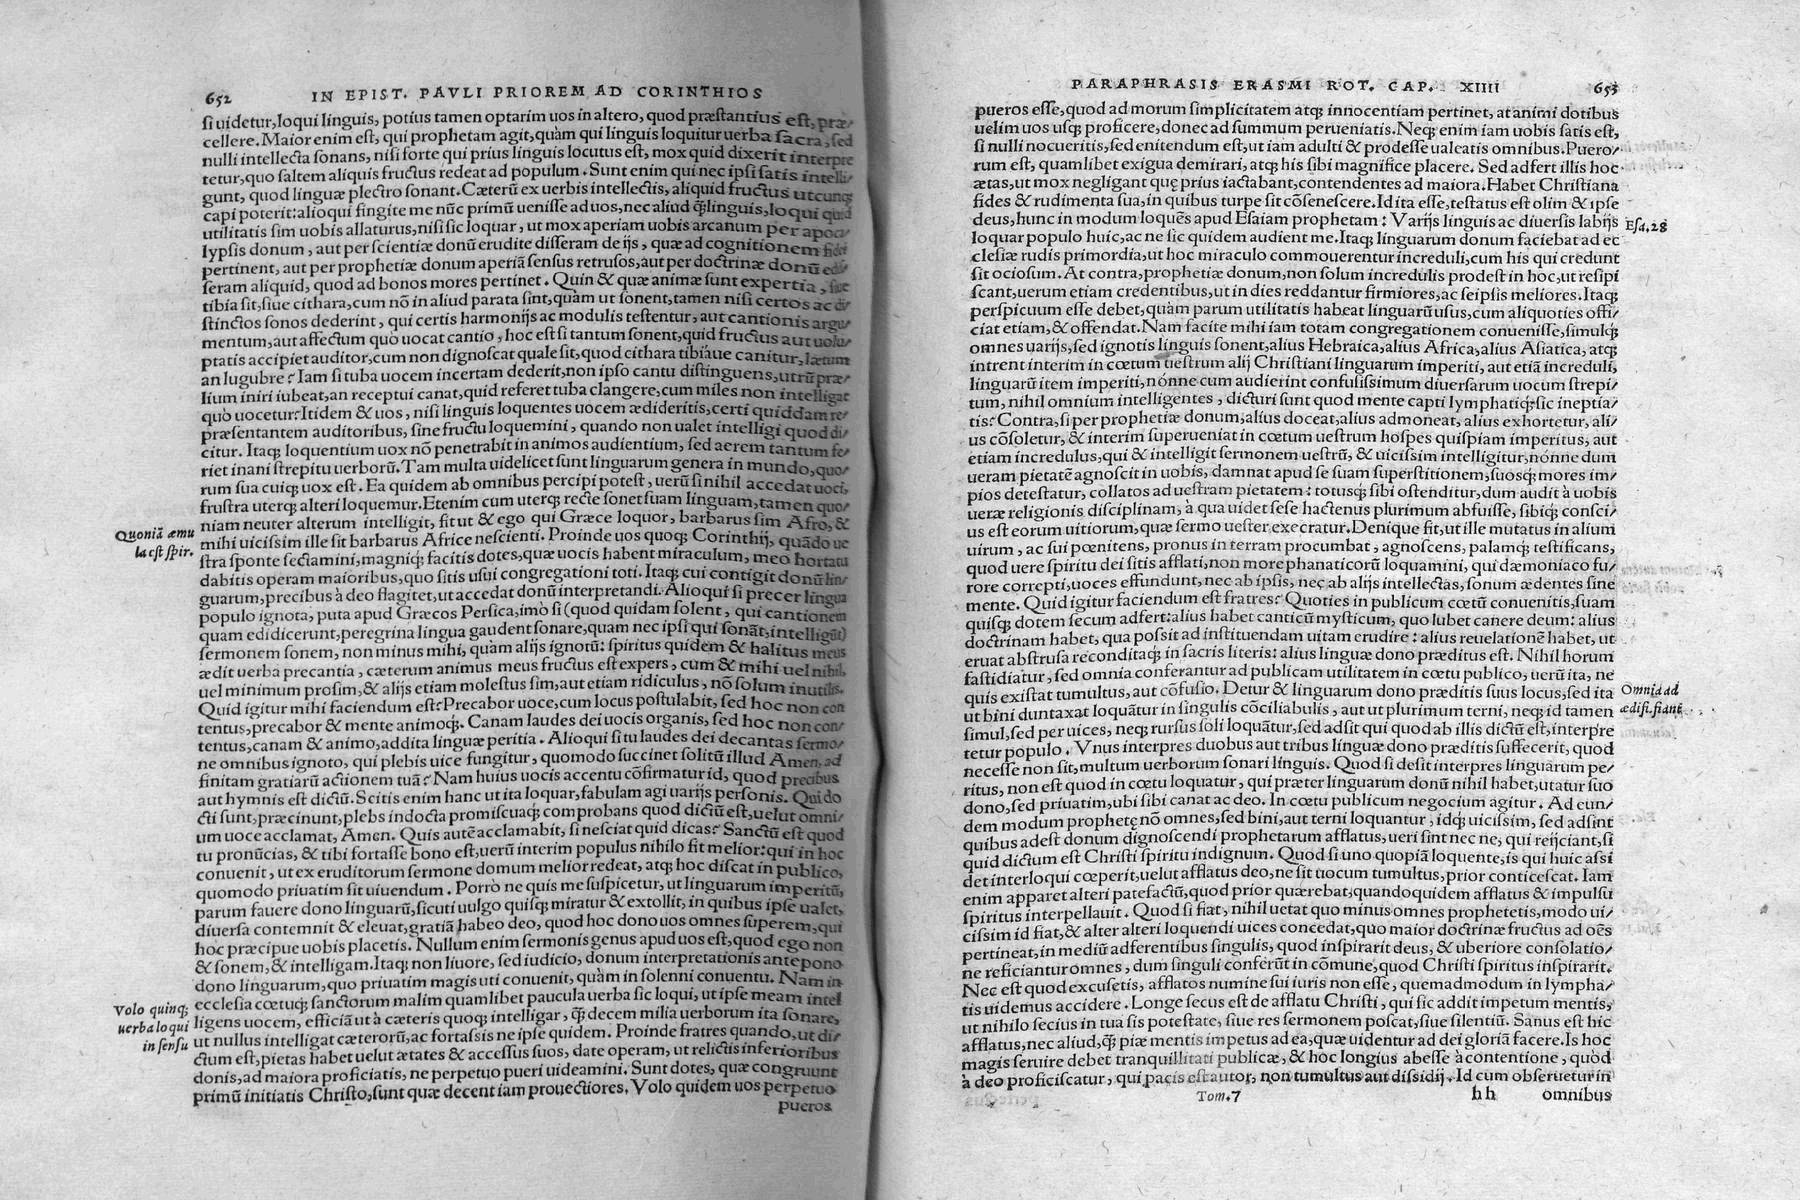 652 IN EPIST. PAVLI PRIOREM AD CORINTHIOS
si uidetur, loqui linguis, potius tamen optarim uos in altero, quod præstantius est, præ/
cellere. Maior enim est, qui prophetam agit, quàm qui linguis loquitur uerba sacra, sed
nulli intellecta sonans, nisi forte qui prius linguis locutus est, mox quid dixerit interpre
tetur, quo saltem aliquis fructus redeat ad populum. Sunt enim qui nec ipsi satis intelli/
gunt, quod linguæ plectro sonant. Cæterũ ex uerbis intellectis, aliquid fructus utcunq;
capi poterit: alioqui fingite me nũc primũ uenisse ad uos, nec aliud q̃ linguis, loqui quid
utilitatis sim uobis allaturus, nisi sic loquar, ut mox aperiam uobis arcanum per apoca/
lypsis donum, aut per scientiæ donũ erudite disseram de ijs, quæ ad cognitionem fidei
pertinent, aut per prophetiæ donum aperiã sensus retrusos, aut per doctrinæ donũ edis/
seram aliquid, quod ad bonos mores pertinet. Quin & quæ animæ sunt expertia, siue
tibia sit, siue cithara, cum nõ in aliud parata sint, quàm ut sonent, tamen nisi certos ac di/
stinctos sonos dederint, qui certis harmonijs ac modulis testentur, aut cantionis argu/
mentum, aut affectum quò uocat cantio, hoc est si tantum sonent, quid fructus aut uolu/
ptatis accipiet auditor, cum non dignoscat quale sit, quod cithara tibiáue canitur, lætum
an lugubre? Iam si tuba uocem incertam dederit, non ipso cantu distinguens, utrũ præ/
lium iniri iubeat, an receptui canat, quid referet tuba clangere, cum miles non intelligat
quò uocetur? Itidem & uos, nisi linguis loquentes uocem ædideritis, certi quiddam re/
præsentantem auditoribus, sine fructu loquemini, quando non ualet intelligi quod di/
citur. Itaq; loquentium uox nõ penetrabit in animos audientium, sed aerem tantum fe/
riet inani strepitu uerborũ. Tam multa uidelicet sunt linguarum genera in mundo, quo/
rum sua cuiq; uox est. Ea quidem ab omnibus percipi potest, uerũ si nihil accedat uoci,
frustra uterq; alteri loquemur. Etenim cum uterq; recte sonet suam linguam, tamen quo/
niam neuter alterum intelligit, fit ut & ego qui Græce loquor, barbarus sim Afro, &
Quoniã æmu
la est spir.
mihi uicissim ille sit barbarus Africe nescienti. Proinde uos quoq; Corinthij, quãdo ue
stra sponte sectamini, magniq́; facitis dotes, quæ uocis habent miraculum, meo hortatu
dabitis operam maioribus, quo sitis usui congregationi toti. Itaq; cui contigit donũ lin/
guarum, precibus à deo flagitet, ut accedat donũ interpretandi. Alioqui si precer lingua
populo ignota, puta apud Græcos Persica, imò si (quod quidam solent, qui cantionem
quam edidicerunt, peregrina lingua gaudent sonare, quam nec ipsi qui sonãt, intelligũt)
sermonem sonem, non minus mihi, quàm alijs ignotũ: spiritus quidem & halitus meus
ædit uerba precantia, cæterum animus meus fructus est expers, cum & mihi uel nihil,
uel minimum prosim, & alijs etiam molestus sim, aut etiam ridiculus, nõ solum inutilis.
Quid igitur mihi faciendum est? Precabor uoce, cum locus postulabit, sed hoc non con
tentus, precabor & mente animoq́;. Canam laudes dei uocis organis, sed hoc non con/
tentus, canam & animo, addita linguæ peritia. Alioqui si tu laudes dei decantas sermo/
ne omnibus ignoto, qui plebis uice fungitur, quomodo succinet solitũ illud Amen, ad
finitam gratiarũ actionem tuã? Nam huius uocis accentu cõfirmatur id, quod precibus
aut hymnis est dictũ. Scitis enim hanc ut ita loquar, fabulam agi uarijs personis. Qui do
cti sunt, præcinunt, plebs indocta promiscuaq́; comprobans quod dictũ est, uelut omni/
um uoce acclamat, Amen. Quis autẽ acclamabit, si nesciat quid dicas? Sanctũ est quod
tu pronũcias, & tibi fortasse bono est, uerũ interim populus nihilo fit melior: qui in hoc
conuenit, ut ex eruditorum sermone domum melior redeat, atq; hoc discat in publico,
quomodo priuatim sit uiuendum. Porrò ne quis me suspicetur, ut linguarum imperitũ,
parum fauere dono linguarũ, sicuti uulgo quisq; miratur & extollit, in quibus ipse ualet,
diuersa contemnit & eleuat, gratiã habeo deo, quod hoc dono uos omnes superem, qui
hoc præcipue uobis placetis. Nullum enim sermonis genus apud uos est, quod ego non
& sonem, & intelligam. Itaq; non liuore, sed iudicio, donum interpretationis antepono
dono linguarum, quo priuatim magis uti conuenit, quàm in solenni conuentu. Nam in
Volo quinq;
uerba loqui
in sensu
ecclesia cœtuq; sanctorum malim quamlibet paucula uerba sic loqui, ut ipse meam intel
ligens uocem, efficiã ut à cæteris quoq; intelligar, q̃ decem milia uerborum ita sonare,
ut nullus intelligat cæterorũ, ac fortassis ne ipse quidem. Proinde fratres quando, ut di/
ctum est, pietas habet uelut ætates & accessus suos, date operam, ut relictis inferioribus
donis, ad maiora proficiatis, ne perpetuo pueri uideamini. Sunt dotes, quæ congruunt
primũ initiatis Christo, sunt quæ decent iam prouectiores. Volo quidem uos perpetuo
pueros
PARAPHRASIS ERASMI ROT. CAP. XIIII 653
pueros esse, quod ad morum simplicitatem atq; innocentiam pertinet, at animi dotibus
uelim uos usq; proficere, donec ad summum perueniatis. Neq; enim iam uobis satis est,
si nulli nocueritis, sed enitendum est, ut iam adulti & prodesse ualeatis omnibus. Puero/
rum est, quamlibet exigua demirari, atq; his sibi magnifice placere. Sed adfert illis hoc
ætas, ut mox negligant quę prius iactabant, contendentes ad maiora. Habet Christiana
fides & rudimenta sua, in quibus turpe sit cõsenescere. Id ita esse, testatus est olim & ipse
deus, hunc in modum loquẽs apud Esaiam prophetam: Varijs linguis ac diuersis labijs
Esa. 28
loquar populo huic, ac ne sic quidem audient me. Itaq; linguarum donum faciebat ad ec
clesiæ rudis primordia, ut hoc miraculo commouerentur increduli, cum his qui credunt
sit ociosum. At contra, prophetiæ donum, non solum incredulis prodest in hoc, ut resipi
scant, uerum etiam credentibus, ut in dies reddantur firmiores, ac seipsis meliores. Itaq;
perspicuum esse debet, quàm parum utilitatis habeat linguarũ usus, cum aliquoties offi/
ciat etiam, & offendat. Nam facite mihi iam totam congregationem conuenisse, simulq́;
omnes uarijs, sed ignotis linguis sonent, alius Hebraica, alius Africa, alius Asiatica, atq;
intrent interim in cœtum uestrum alij Christiani linguarum imperiti, aut etiã increduli,
linguarũ item imperiti, nónne cum audierint confusissimum diuersarum uocum strepi/
tum, nihil omnium intelligentes, dicturi sunt quod mente capti lymphatiq́; sic ineptia/
tis? Contra, si per prophetiæ donum, alius doceat, alius admoneat, alius exhortetur, ali/
us cõsoletur, & interim superueniat in cœtum uestrum hospes quispiam imperitus, aut
etiam incredulus, qui & intelligit sermonem uestrũ, & uicissim intelligitur, nónne dum
ueram pietatẽ agnoscit in uobis, damnat apud se suam superstitionem, suosq́; mores im/
pios detestatur, collatos ad uestram pietatem: totusq́; sibi ostenditur, dum audit à uobis
ueræ religionis disciplinam, à qua uidet sese hactenus plurimum abfuisse, sibiq́; consci/
us est eorum uitiorum, quæ sermo uester execratur. Denique fit, ut ille mutatus in alium
uirum, ac sui pœnitens, pronus in terram procumbat, agnoscens, palamq́; testificans,
quod uere spiritu dei sitis afflati, non more phanaticorũ loquamini, qui dæmoniaco fu/
rore correpti, uoces effundunt, nec ab ipsis, nec ab alijs intellectas, sonum ædentes sine
mente. Quid igitur faciendum est fratres? Quoties in publicum cœtũ conuenitis, suam
quisq; dotem secum adfert: alius habet canticũ mysticum, quo lubet canere deum: alius
doctrinam habet, qua possit ad instituendam uitam erudire: alius reuelationẽ habet, ut
eruat abstrusa reconditaq́; in sacris literis: alius linguæ dono præditus est. Nihil horum
fastidiatur, sed omnia conferantur ad publicam utilitatem in cœtu publico, uerũ ita, ne
quis existat tumultus, aut cõfusio. Detur & linguarum dono præditis suus locus, sed ita
Omnia ad
ædifi. fiant
ut bini duntaxat loquãtur in singulis cõciliabulis, aut ut plurimum terni, neq; id tamen
simul, sed per uices, neq; rursus soli loquãtur, sed adsit qui quod ab illis dictũ est, interpre
tetur populo. Vnus interpres duobus aut tribus linguæ dono præditis suffecerit, quod
necesse non sit, multum uerborum sonari linguis. Quod si desit interpres linguarum pe/
ritus, non est quod in cœtu loquatur, qui præter linguarum donũ nihil habet, utatur suo
dono, sed priuatim, ubi sibi canat ac deo. In cœtu publicum negocium agitur. Ad eun/
dem modum prophetę nõ omnes, sed bini, aut terni loquantur, idq́; uicissim, sed adsint
quibus adest donum dignoscendi prophetarum afflatus, ueri sint nec ne, qui reijciant, si
quid dictum est Christi spiritu indignum. Quod si uno quopiã loquente, is qui huic assi
det interloqui cœperit, uelut afflatus deo, ne sit uocum tumultus, prior conticescat. Iam
enim apparet alteri patefactũ, quod prior quærebat, quandoquidem afflatus & impulsu
spiritus interpellauit. Quod si fiat, nihil uetat quo minus omnes prophetetis, modo ui/
cissim id fiat, & alter alteri loquendi uices concedat, quo maior doctrinæ fructus ad oẽs
pertineat, in mediũ adferentibus singulis, quod inspirarit deus, & uberiore consolatio/
ne reficiantur omnes, dum singuli conferũt in cõmune, quod Christi spiritus inspirarit.
Nec est quod excusetis, afflatos numine sui iuris non esse, quemadmodum in lympha/
tis uidemus accidere. Longe secus est de afflatu Christi, qui sic addit impetum mentis,
ut nihilo secius in tua sis potestate, siue res sermonem poscat, siue silentiũ. Sanus est hic
afflatus, nec aliud, q̃ piæ mentis impetus ad ea, quæ uidentur ad dei gloriã facere. Is hoc
magis seruire debet tranquillitati publicæ, & hoc longius abesse à contentione, quòd
à deo proficiscatur, qui pacis est autor, non tumultus aut dissidij. Id cum obseruetur in
Tom. 7 hh omnibus